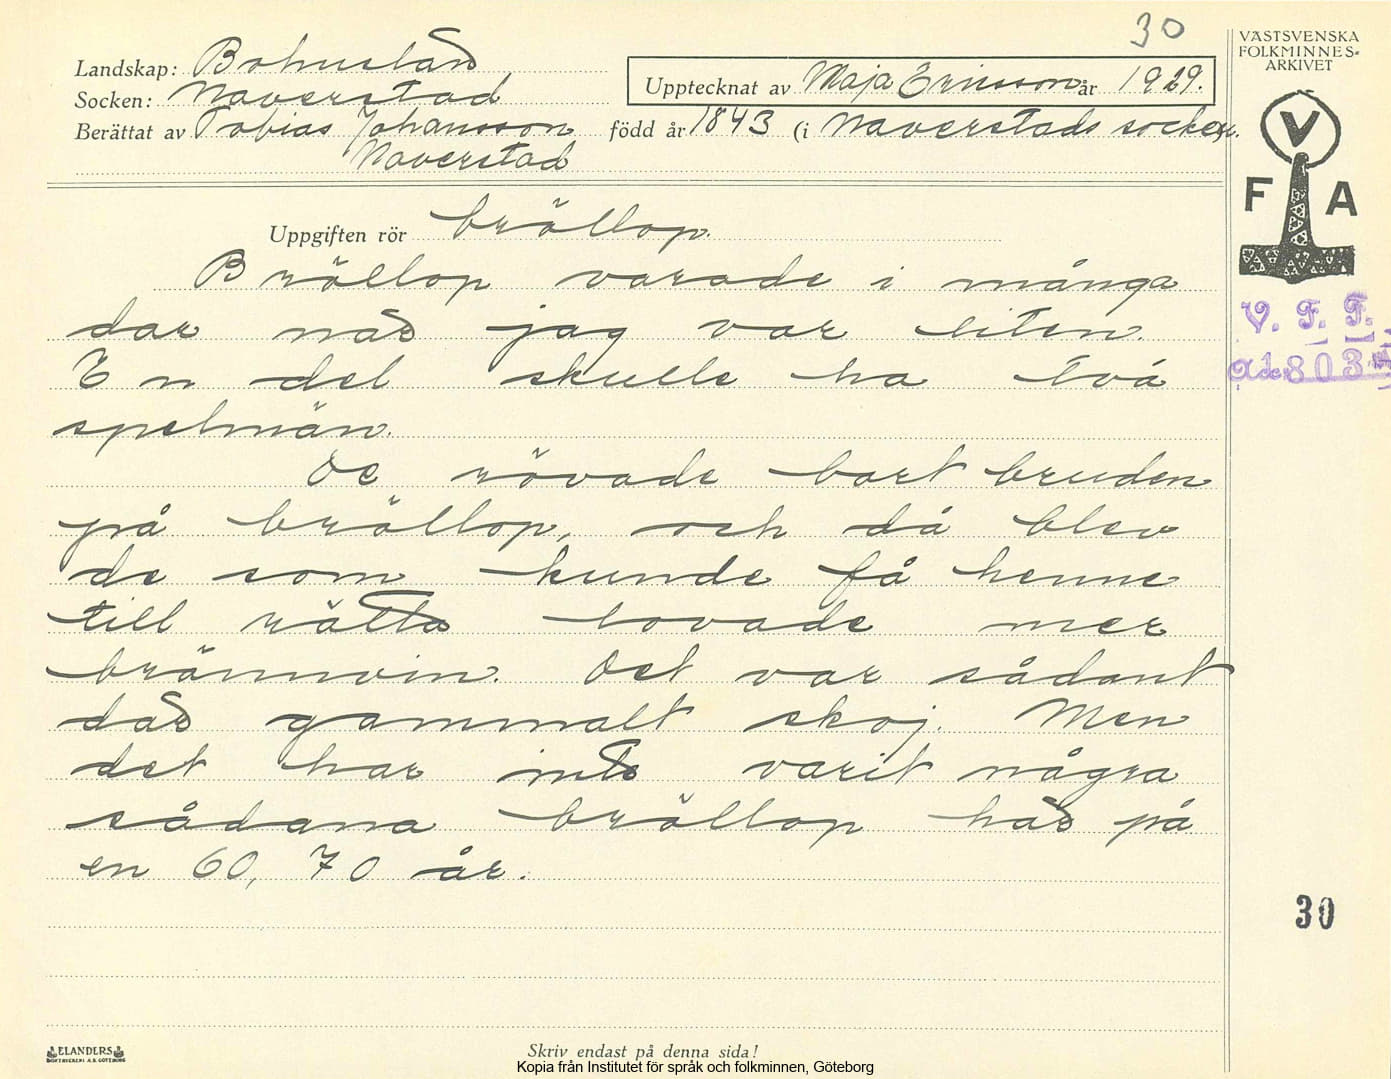 30
Landskap: Bohuslän
Socken: Naverstad
Upptecknat av Maja Ericsson år 1929.
Berättat av Tobias Johansson född år 1843 (i Naverstads socken.
Naverstad
VÄSTSVENSKA
FOLKMINNES-
ARKIVET
V
F A
Uppgiften rör bröllop.
Bröllop varade i många
dar när jag var liten.
En del skulle ha två
spelmän.
De rövade bort bruden
på bröllop, och då blev
de som kunde få henne
till rätta lovade mer
brännvin. Det var sådant
där gammalt skoj. Men
det har inte varit några
sådana bröllop här på
en 60, 70 år.
V. F. F.
803
30
ELANDERS
BOKTRYCKERI A.B. GÖTEBORG
Skriv endast på denna sida!
Kopia från Institutet för språk och folkminnen, Göteborg